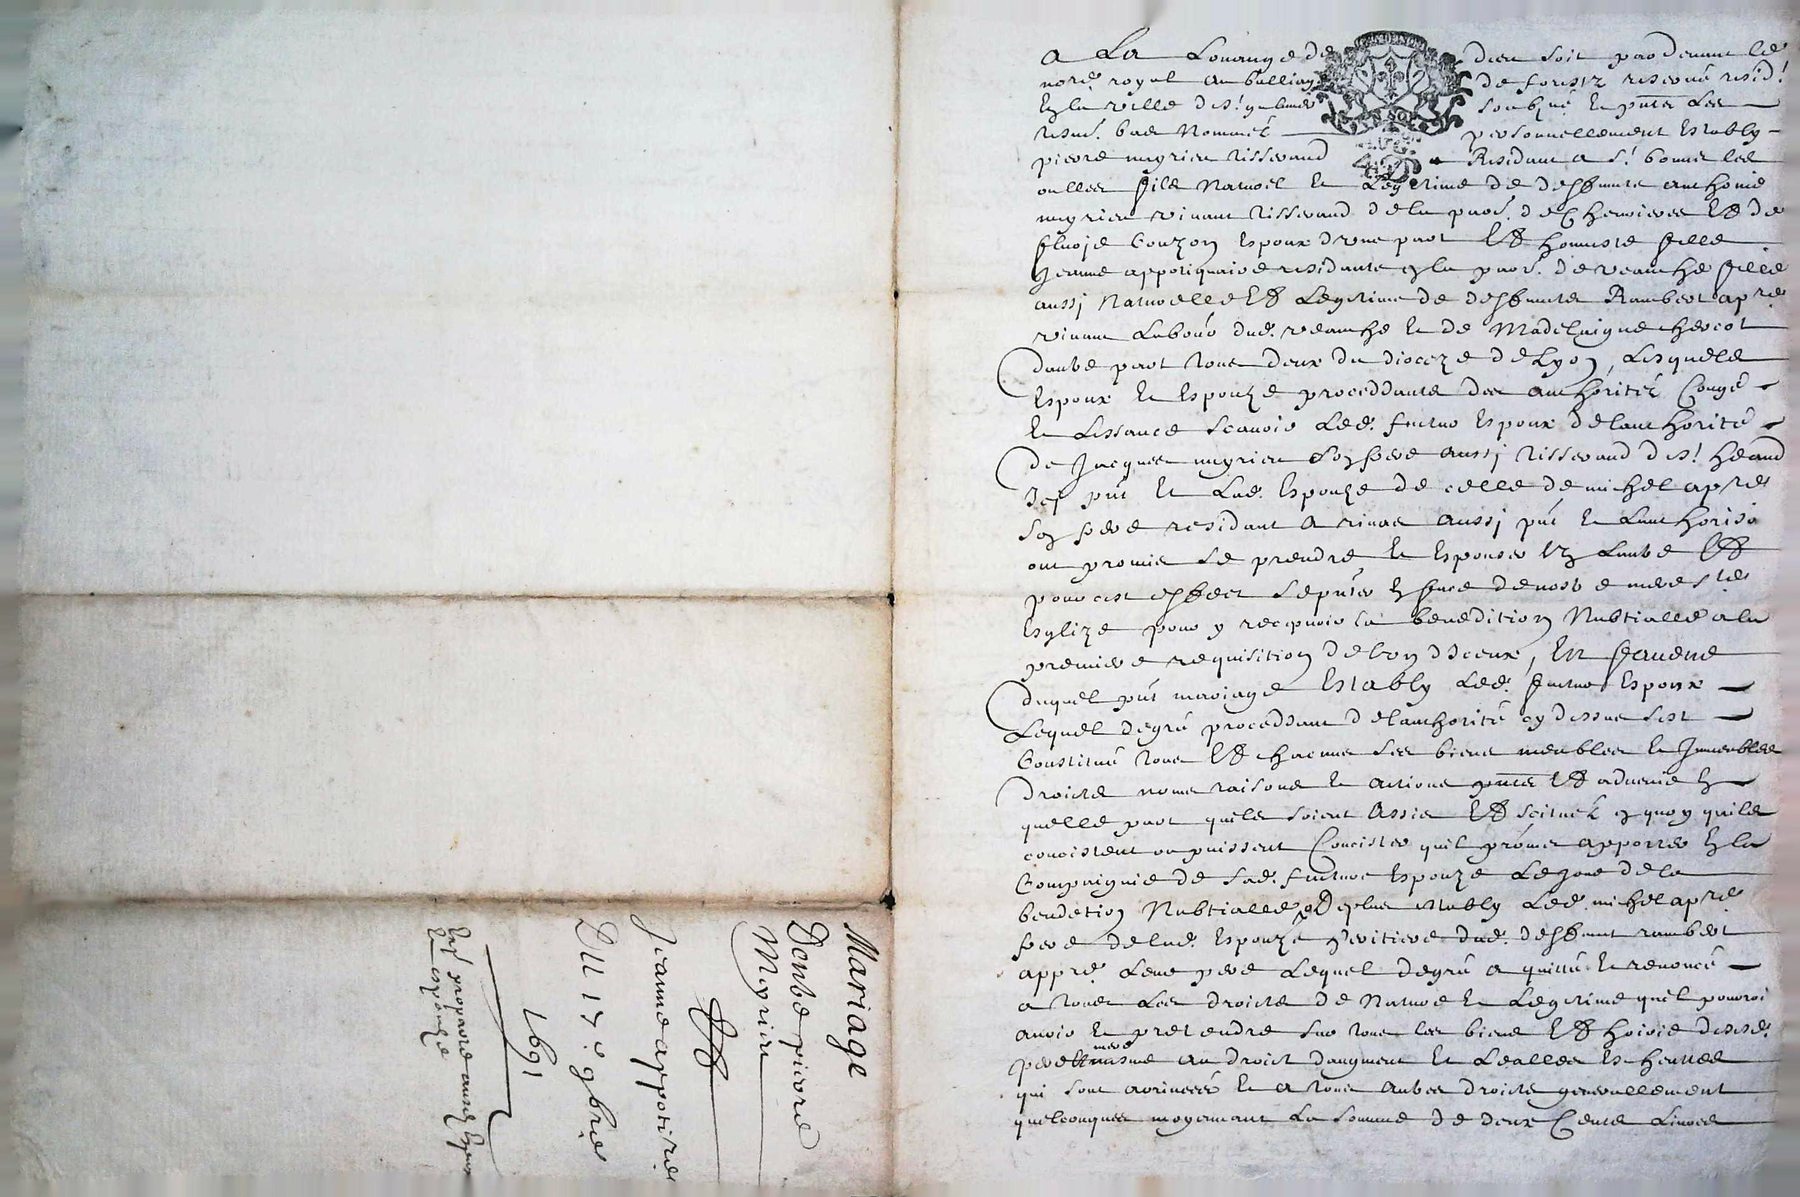 A La Louange de dieu soit pardevant le
nore. royal au balliage de forestz reservé resid.t
En la ville de s.t galmier soubzné et pntz Les
tesm. bas Nommez personnellement Estably
pierre meyrieu tisserand Residant a s.t bonnet les
oulles fils Naturel et Legitime de deffuncts anthoine
meyrieu vivant tisserand de la parr. de Chevrieres Et de
Gonzon Espoux d'vne part Et honneste fille
Jeanne appotiquaire residante en la parr. de veauche fille
aussi Naturelle Et Legitime de deffuncts Rambert apre
vivant Labour dud. veauche Et de Madelaigne
d'autre part tous deux du dioceze de Lyon, Lesquels
Espoux et Espouze proceddants des authoritéz Congé
et Lissance scavoir Led. futur Espoux de lauthorité
de Jacques meyrieu son frere aussi tisserand de s.t heand
Icy pnt Et Lad. Espouze de celle de michel apre
son frere residant a rivas aussi pnt et Lauthorisa
ont promis se prendre et Espouser L'un Lautre Et
pour cest effect se pnter En face de nostre mere ste
Esglize pour y recepvoir la benedition Nubtialle a la
premiere requisition de l'on d'Iceux, En faveur
duquel pnt mariage Estably Led. futur Espoux
Lequel de gré proceddant de lauthorité cy dessus sest
Constitué tous Et chacuns ses biens meubles et Immeubles
droicts noms raisons et actions pnts Et advenir En
quelle part quils soient Assis Et scituéz en quoy quils
concistent ou puissent Concister quil promet apporter En la
Compaignie de sad. future Espouze Le Jour de la
bendetion Nubtialle Deplus Estably Led. michel apre
frere de lad. Espouze heritiere dud. deffunt rambert
appre. Leur pere Lequel de gré a quitté et renoncé
a tous Les droicts de Nature et Legitime quel pourroit
avoir et pretendre sur tous les biens Et hoirie desd.
pere Et mere mesme au droict daugment et Les
qui sont arrivéés et a tous autres droicts generallement
quelconques moyennant La somme de deux Cents Livres
Mariage
D'entre pierre
Meyrieu
Et
Jeanne appotire
Du 17.e 9bre
1691